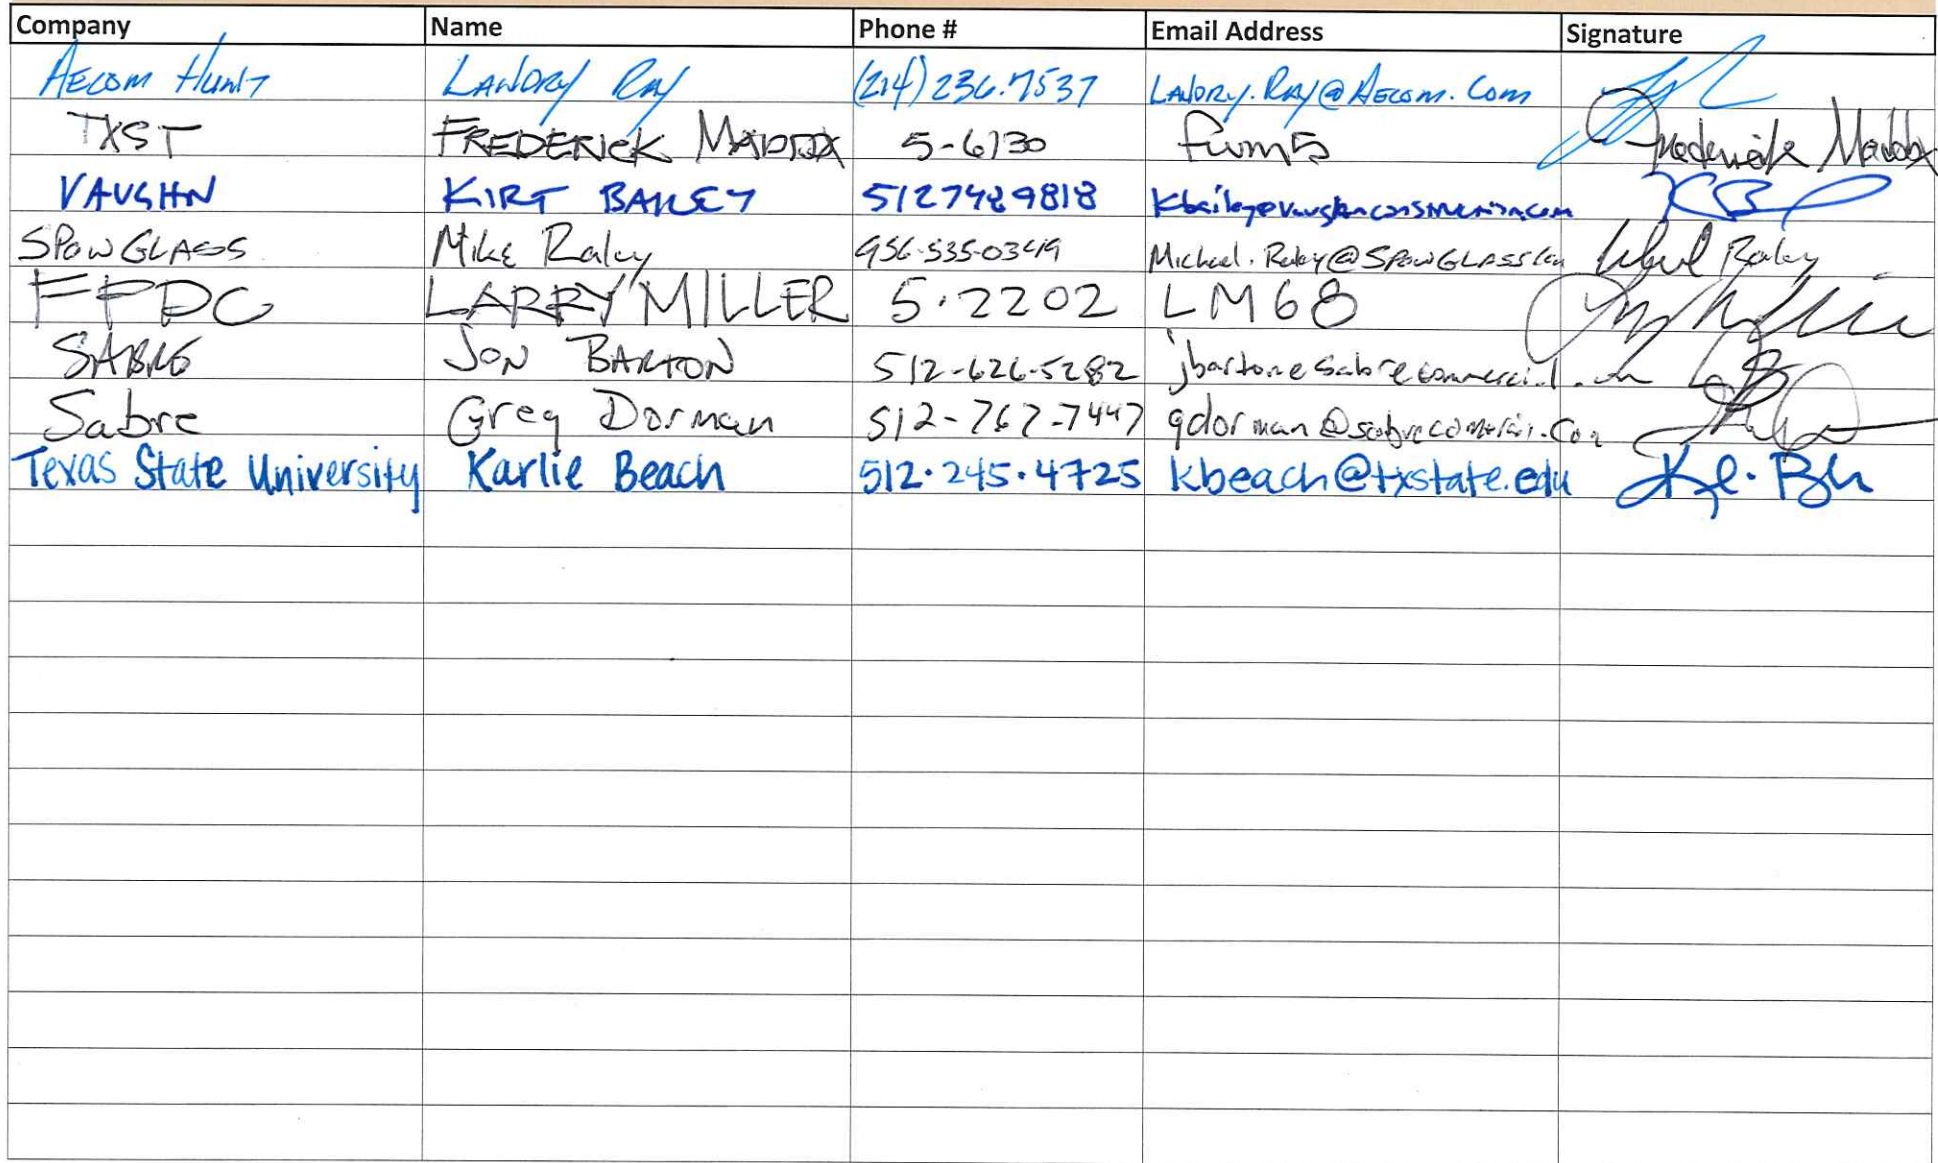 Company Name Phone # Email Address Signature
AECOM HUNT LANDRY RAY (214) 236.7537 LANDRY.RAY@AECOM.COM
TXST FREDERICK MADDOX 5-6130 fwm5 Frederick Maddox
VAUGHN KIRT BAILEY 5127489818 kbailey@vaughnconstruction.com KB
SPawGLASS Mike Raley 956-535-0349 Michael.Raley@SPawGLASS.com Raley
FPDC LARRY MILLER 5.2202 LM68
SABRE JON BARTON 512-626-5282 jbarton@sabrecommercial.com
Sabre Greg Dorman 512-767-7447 gdorman@sabrecommerci.com
Texas State University Karlie Beach 512.245.4725 kbeach@txstate.edu